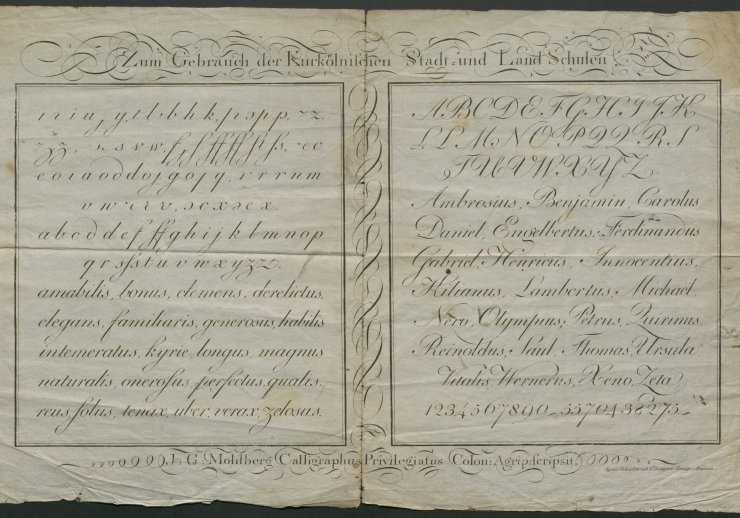 Zum Gebrauch der Kurkölnischen Stadt- und Land Schulen
a b c d d e f ff g h i j k l m n o p
q r s ſs t u v w x y z
amabilis, bonus, clemens, derelictus,
elegans, familiaris, generosus, habilis
intemeratus, kyrie, longus, magnus
naturalis, oneroſus, perfectus, qualis,
reus, ſolus, tenax, uber, verax, zelosus.
A B C D E F G H I J K
L L M N O P Q Q R S
T U V W X Y Z
Ambrosius, Benjamin, Carolus
Daniel, Engelbertus, Ferdinandus
Gabriel, Henricus, Innocentius,
Kilianus, Lambertus, Michael
Nero, Olympius, Petrus, Quirinus,
Reinoldus, Saul, Thomas, Ursula
Vitalis, Wernerus, Xeno, Zeta
1234567890
J. G. Mohlberg Calligraphus Privilegiatus Colon: Agrip: ſcripsit